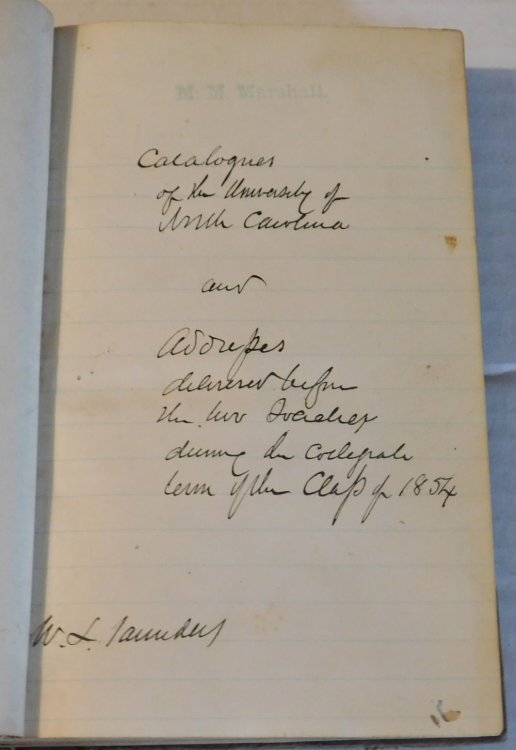 M. M. Marshall.
Catalogues
of the University of
North Carolina
and
Addresses
delivered before
the two Societies
during the Collegiate
term of the Class of 1854
W. L. Saunders